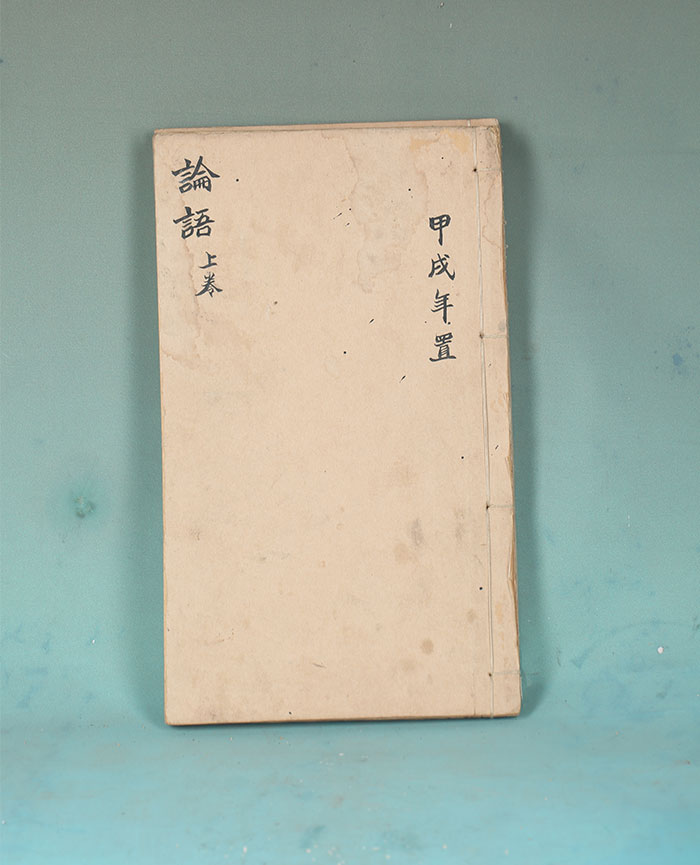 甲戌年置
論語
上卷